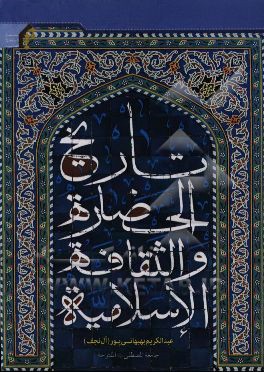 تاريخ
الحضارة
والثقافة
الإسلامية
عبدالکریم بهبهانی‌پور (آل نجف)